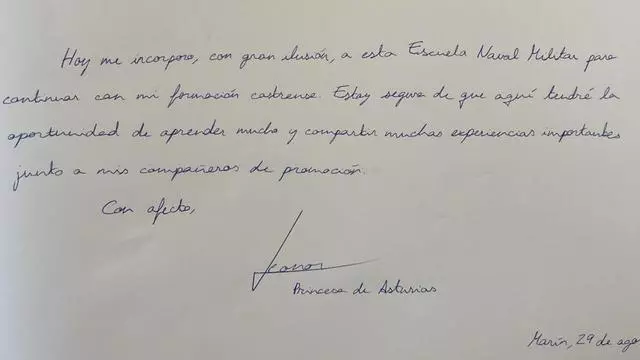 Hoy me incorporo, con gran ilusión, a esta Escuela Naval Militar para
continuar con mi formación castrense. Estoy segura de que aquí tendré la
oportunidad de aprender mucho y compartir muchas experiencias importantes
junto a mis compañeros de promoción.
Con afecto,
Leonor
Princesa de Asturias
Marín, 29 de ago